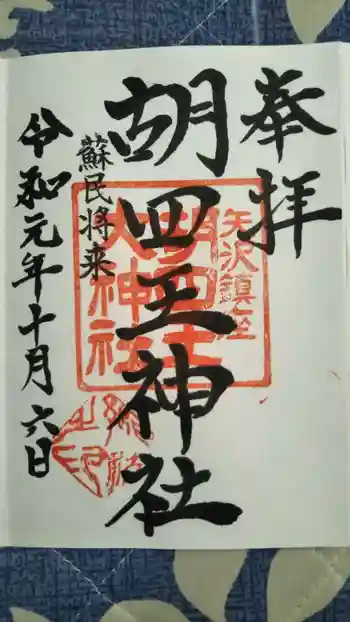 奉拝
胡四王神社
蘇民将来
令和元年十月六日
矢沢鎮座
胡四王
大神社